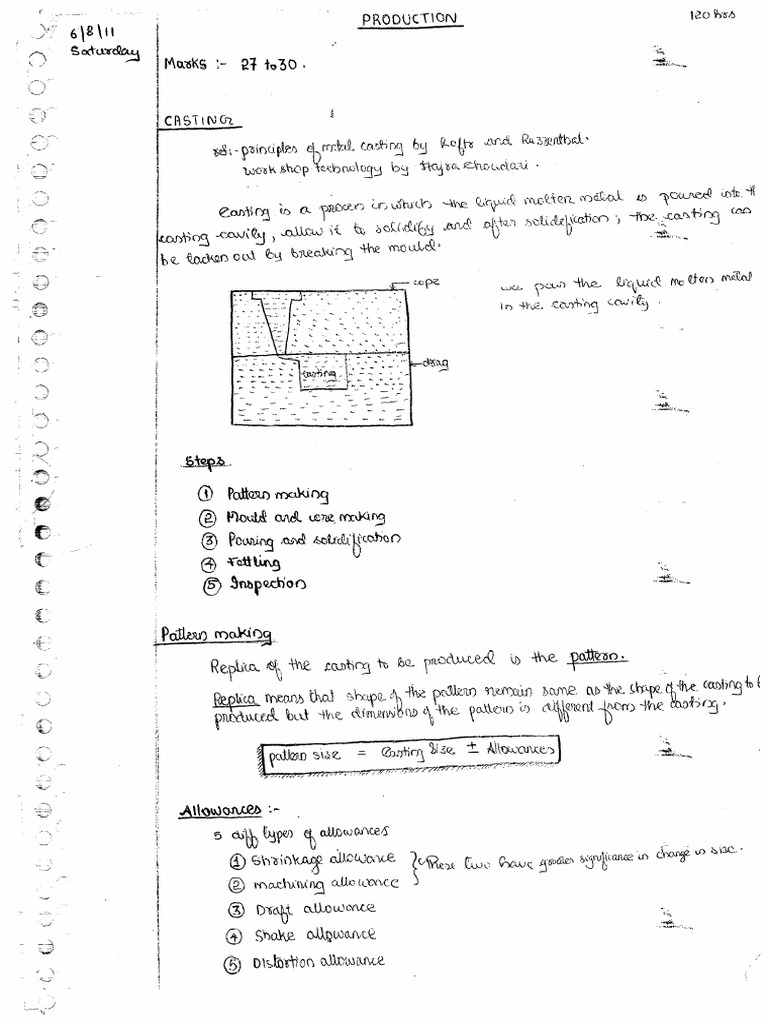 PRODUCTION
120 hrs
6/8/11
Saturday
Marks :- 27 to 30.
CASTING
ref:- principles of metal casting by and
work shop technology by Hajra Choudari.
Casting is a process in which the liquid molten metal is poured into
casting cavity, allow it to solidify and after solidification, the casting can
be tacken out by breaking the mould.
cope
we pour the liquid molten metal
in the casting cavity.
drag
casting
Steps
① Pattern making
② Mould and core making
③ Pouring and solidification
④ Fettling
⑤ Inspection
Pattern making
Replica of the casting to be produced is the pattern.
Replica means that shape of the pattern remain same as the shape of the casting to
produced but the dimensions of the pattern is different from the casting.
pattern size = Casting Size ± Allowances
Allowances :-
5 diff types of allowances
① Shrinkage allowance
These two have greater significance in change in size.
② machining allowance
③ Draft allowance
④ Shake allowance
⑤ Distortion allowance